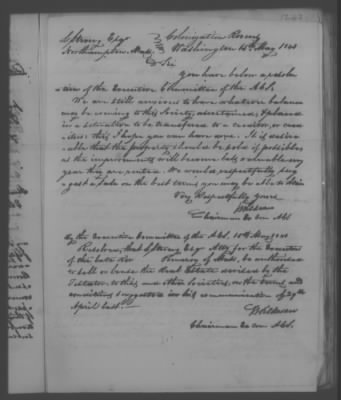 Strong Esqr Colonization Rooms
Northampton Mass. Washington 16th May 1840
Sir
You have below a resolu
tion of the Executive Committee of the A.C.S.
We are still anxious to have whatever balance
may be coming to this Society ascertained, & placed
in a situation to be transferred to a creditor, or cred
itors: this I hope you can have done. It is desir
able that the property should be sold if possible
as the improvements will become less valuable every
year they are rented. We would respectfully sug
gest a sale on the best terms you may be able to obtain
Very Respectfully Yours
Chairman Ex Com ACS
By the Executive Committee of the A.C.S. 15th May 1840
Resolved, that Strong Esqr Atty for the Executor
of the late Rev Pomeroy of Mass, be authorized
to sell or lease the Real Estate devised by the
Testator to this, and other Societies, on the terms and
conditions suggested in his communication of 29th
April last.
Chairman Ex Com ACS.